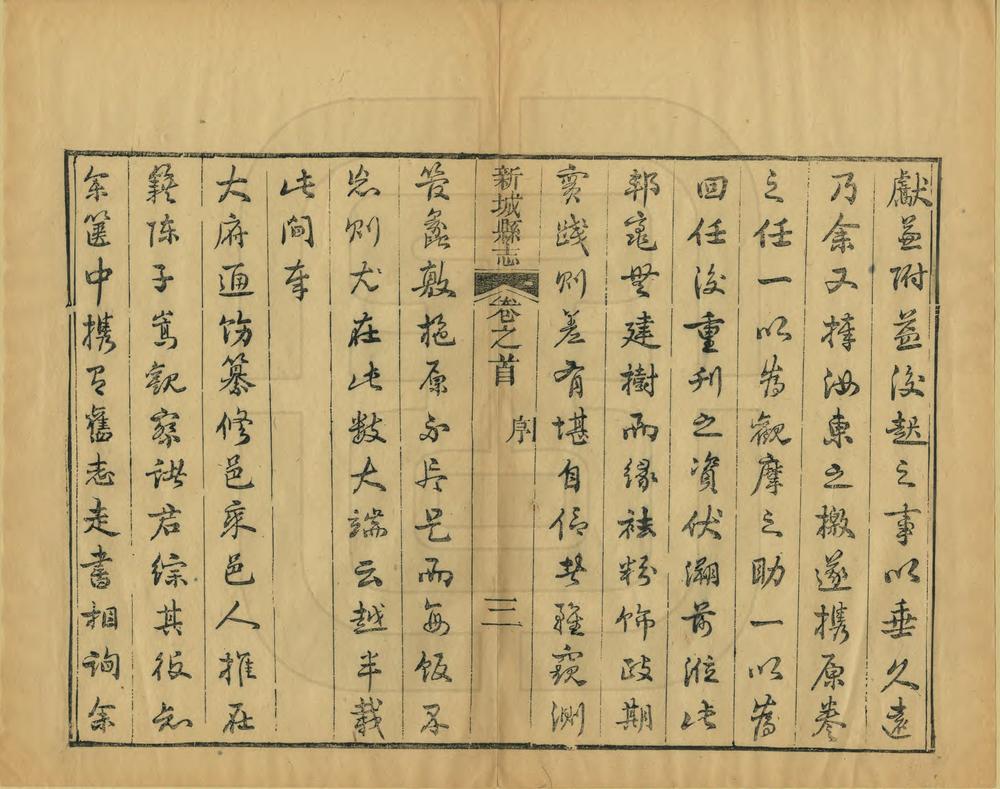 獻並附益後起之事以垂久遠
乃余又捧汝東之檄遂携原卷
之任一以為觀摩之助一以為
回任後重刊之資伏溯前涖此
郭毫無建樹而緣裝粉飾政期
實踐則差有堪自信者雖窺測
新城縣志
卷之首
序
三
管蠡敷施原不足而每飯不
忘則尤在此數大端云越半載
此間奉
大府通飭纂修邑乘邑人推在
籍陈子嵩觀察諸君綜其役知
余篋中携有舊志走書相詢余